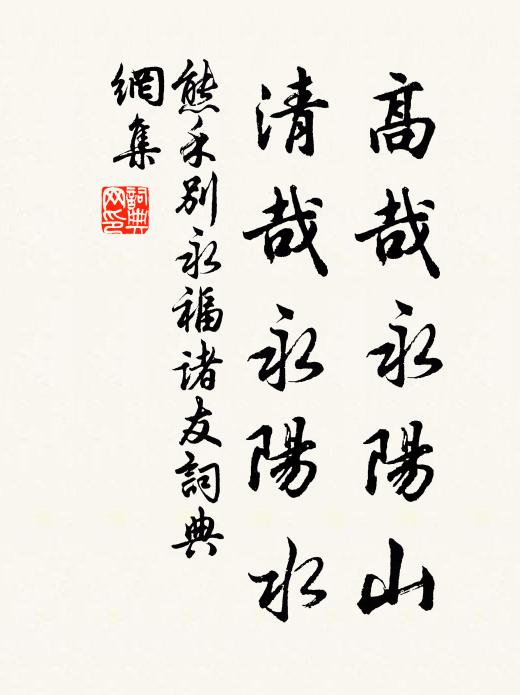 高哉永陽山
清哉永陽水
熊禾別永福諸友詞典
網集
詞典
网印